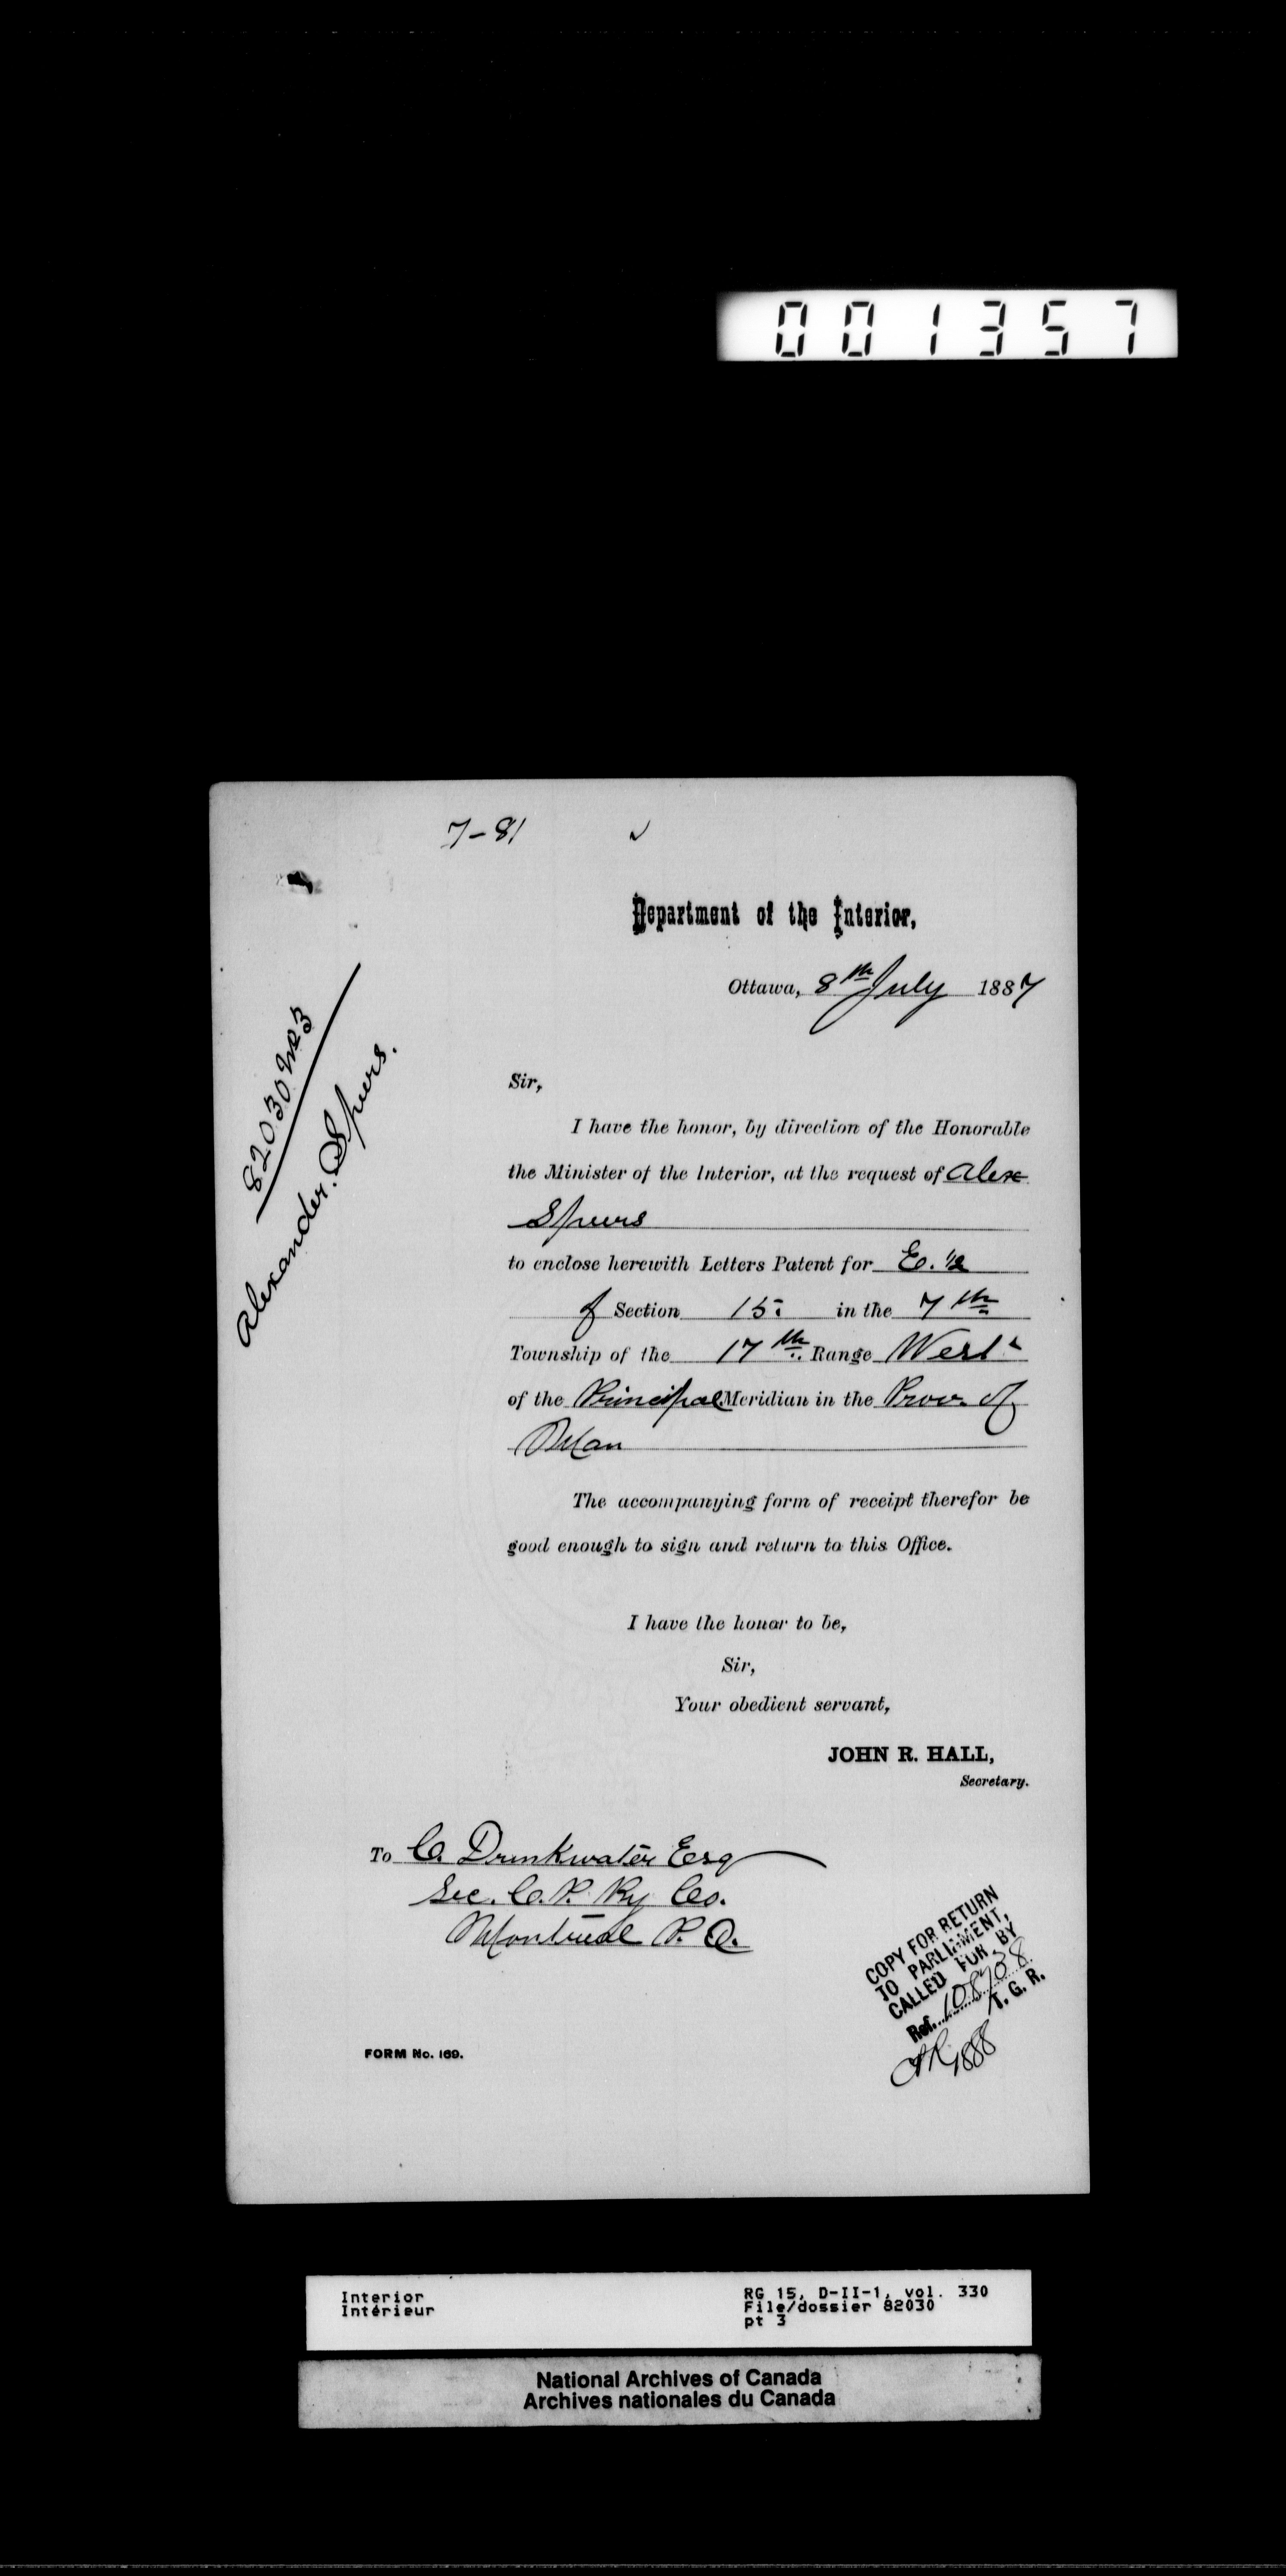 001357
7-81
Department of the Interior,
Ottawa, 8th July 1887
82030 No 3
Alexander Spurs.
Sir,
I have the honor, by direction of the Honorable
the Minister of the Interior, at the request of Alex
Spurs
to enclose herewith Letters Patent for E. 1/2
of Section 15 in the 7th
Township of the 17th Range West
of the Principal Meridian in the Prov. of
Man
The accompanying form of receipt therefor be
good enough to sign and return to this Office.
I have the honor to be,
Sir,
Your obedient servant,
JOHN R. HALL,
Secretary.
To C. Drinkwater Esq
Sec. C. P. Ry Co.
Montreal P. Q.
COPY FOR RETURN
TO PARLIAMENT,
CALLED FOR BY
Ref. 108708
T. G. R.
1888
FORM No. 169.
Interior
Intérieur
RG 15, D-II-1, vol. 330
File/dossier 82030
pt 3
National Archives of Canada
Archives nationales du Canada